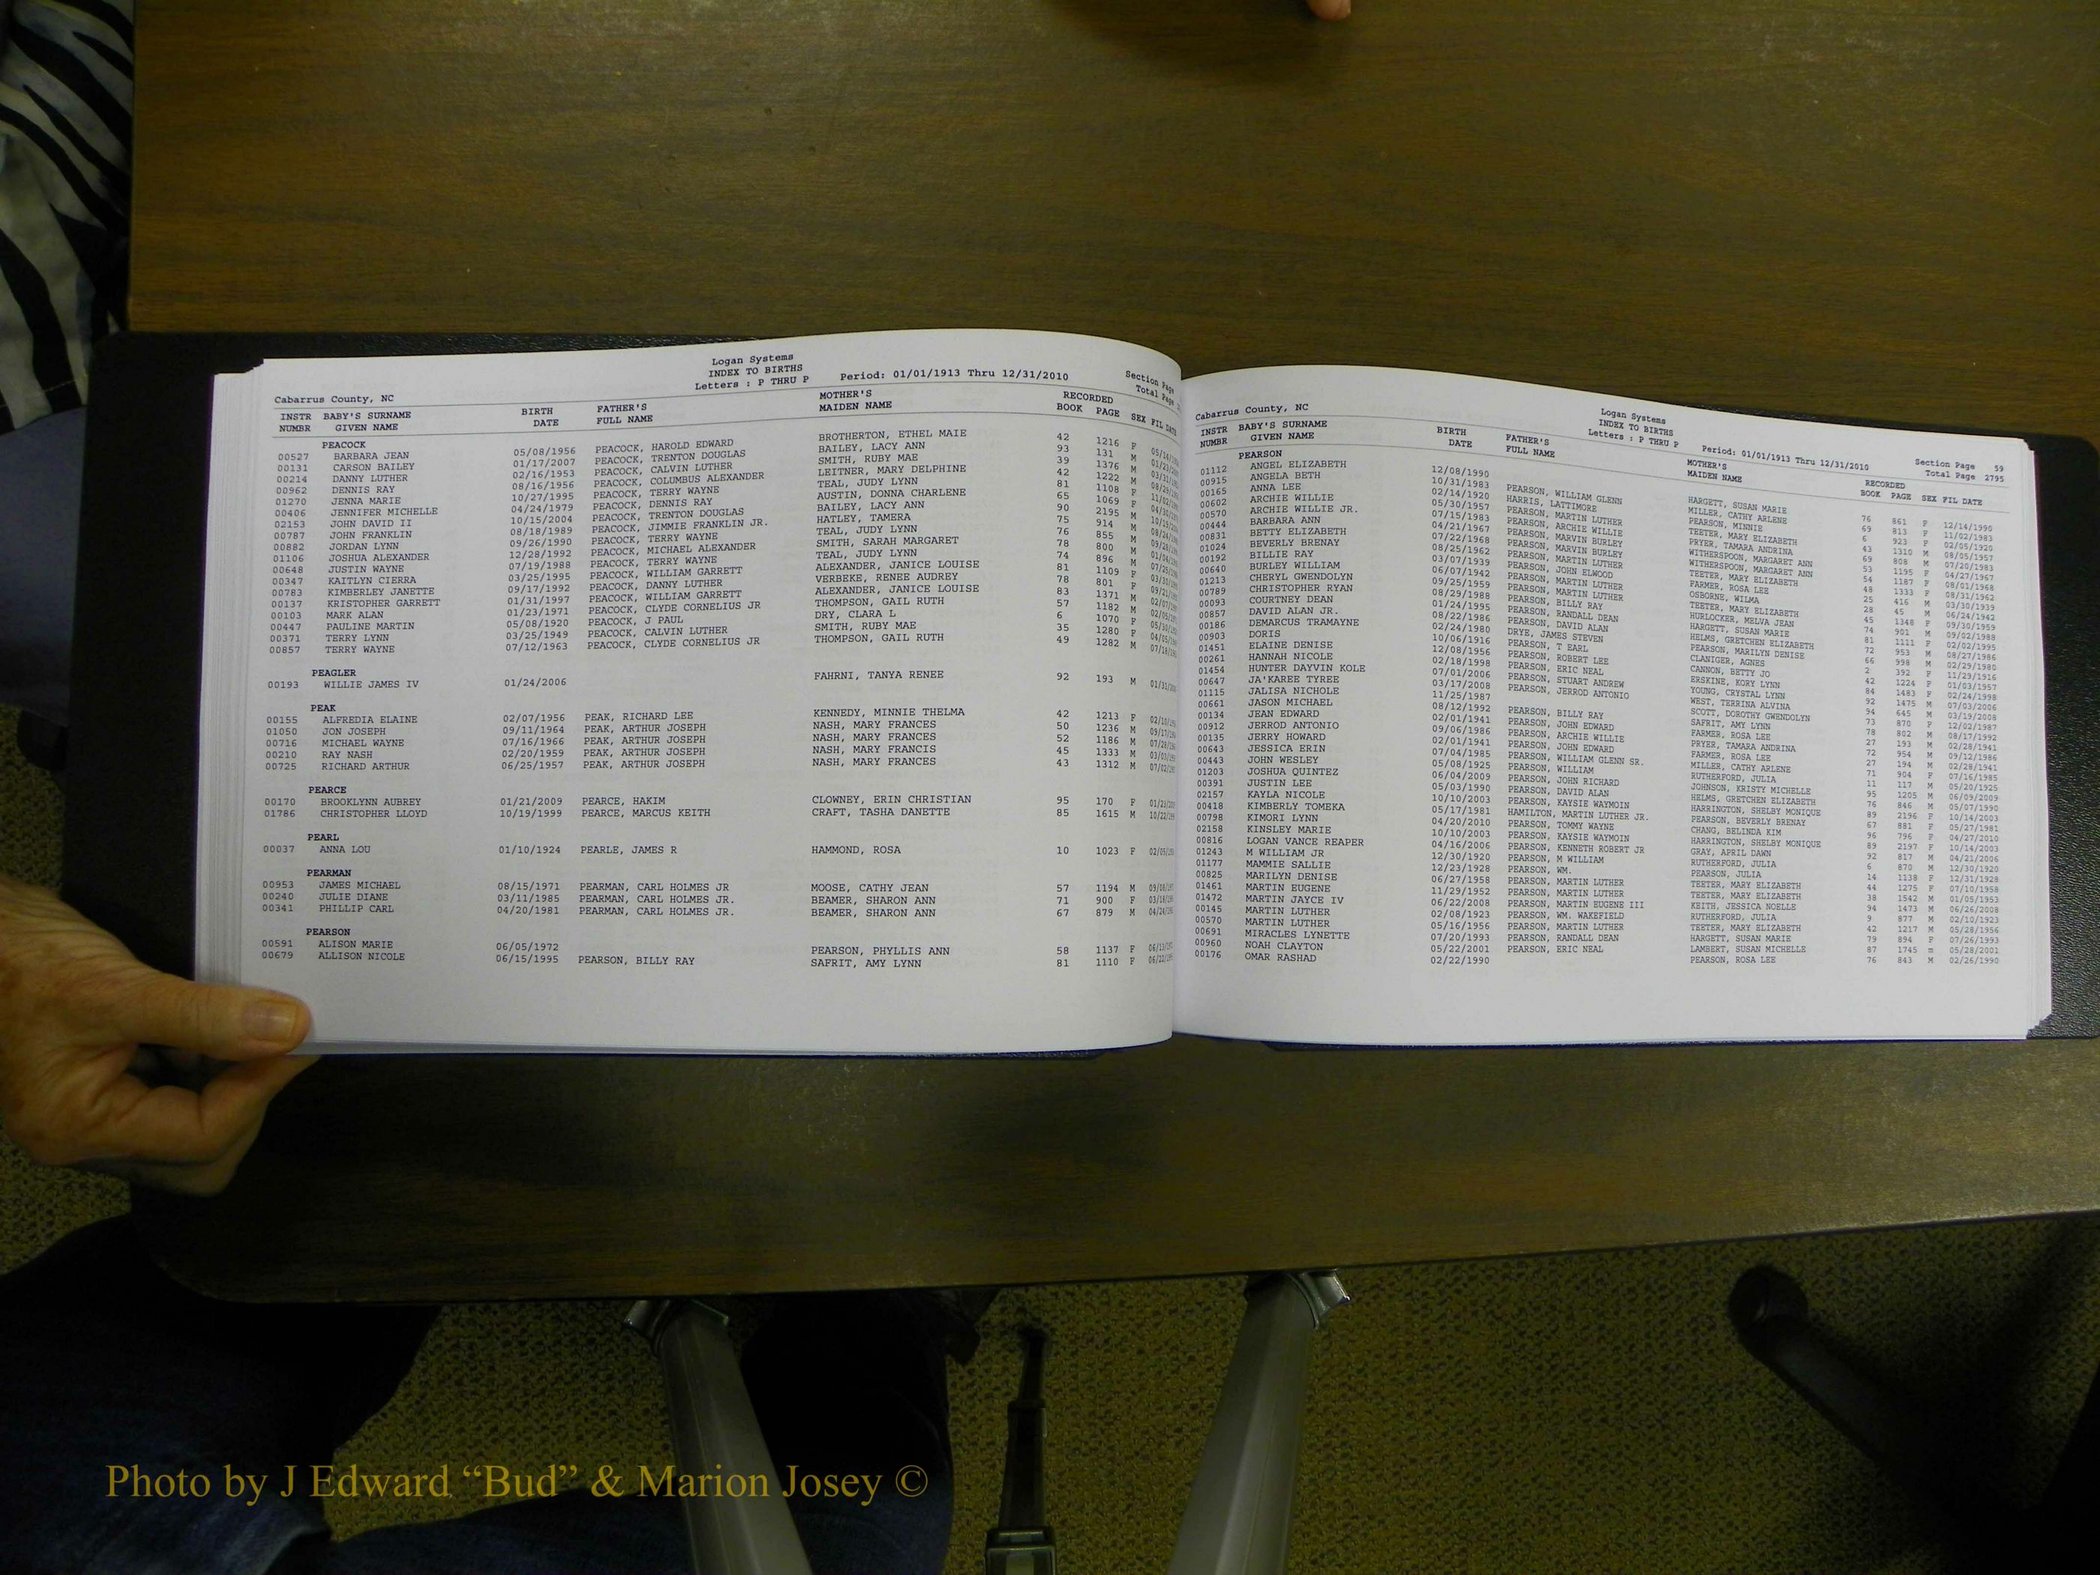 Logan Systems
INDEX TO BIRTHS
Letters : P THRU P Period: 01/01/1913 Thru 12/31/2010 Section Page
Cabarrus County, NC Total Page
INSTR BABY'S SURNAME BIRTH FATHER'S MOTHER'S RECORDED
NUMBR GIVEN NAME DATE FULL NAME MAIDEN NAME BOOK PAGE SEX FIL DATE
PEACOCK
00527 BARBARA JEAN 05/08/1956 PEACOCK, HAROLD EDWARD BROTHERTON, ETHEL MAIE 42 1216 F
00131 CARSON BAILEY 01/17/2007 PEACOCK, TRENTON DOUGLAS BAILEY, LACY ANN 93 131 M
00214 DANNY LUTHER 02/16/1953 PEACOCK, CALVIN LUTHER SMITH, RUBY MAE 39 1376 M
00962 DENNIS RAY 08/16/1956 PEACOCK, COLUMBUS ALEXANDER LEITNER, MARY DELPHINE 42 1222 M
01270 JENNA MARIE 10/27/1995 PEACOCK, TERRY WAYNE TEAL, JUDY LYNN 81 1108 F
00406 JENNIFER MICHELLE 04/24/1979 PEACOCK, DENNIS RAY AUSTIN, DONNA CHARLENE 65 1069 F
02153 JOHN DAVID II 10/15/2004 PEACOCK, TRENTON DOUGLAS BAILEY, LACY ANN 90 2195 M
00787 JOHN FRANKLIN 08/18/1989 PEACOCK, JIMMIE FRANKLIN JR. HATLEY, TAMERA 75 914 M
00882 JORDAN LYNN 09/26/1990 PEACOCK, TERRY WAYNE TEAL, JUDY LYNN 76 855 M
01106 JOSHUA ALEXANDER 12/28/1992 PEACOCK, MICHAEL ALEXANDER SMITH, SARAH MARGARET 78 800 M
00648 JUSTIN WAYNE 07/19/1988 PEACOCK, TERRY WAYNE TEAL, JUDY LYNN 74 896 M
00347 KAITLYN CIERRA 03/25/1995 PEACOCK, WILLIAM GARRETT ALEXANDER, JANICE LOUISE 81 1109 F
00783 KIMBERLEY JANETTE 09/17/1992 PEACOCK, DANNY LUTHER VERBEKE, RENEE AUDREY 78 801 F
00137 KRISTOPHER GARRETT 01/31/1997 PEACOCK, WILLIAM GARRETT ALEXANDER, JANICE LOUISE 83 1371 M
00103 MARK ALAN 01/23/1971 PEACOCK, CLYDE CORNELIUS JR THOMPSON, GAIL RUTH 57 1182 M
00447 PAULINE MARTIN 05/08/1920 PEACOCK, J PAUL DRY, CLARA L 6 1070 F
00371 TERRY LYNN 03/25/1949 PEACOCK, CALVIN LUTHER SMITH, RUBY MAE 35 1280 F
00857 TERRY WAYNE 07/12/1963 PEACOCK, CLYDE CORNELIUS JR THOMPSON, GAIL RUTH 49 1282 M
PEAGLER
00193 WILLIE JAMES IV 01/24/2006 FAHRNI, TANYA RENEE 92 193 M
PEAK
00155 ALFREDIA ELAINE 02/07/1956 PEAK, RICHARD LEE KENNEDY, MINNIE THELMA 42 1213 F
01050 JON JOSEPH 09/11/1964 PEAK, ARTHUR JOSEPH NASH, MARY FRANCES 50 1236 M
00716 MICHAEL WAYNE 07/16/1966 PEAK, ARTHUR JOSEPH NASH, MARY FRANCES 52 1186 M
00210 RAY NASH 02/20/1959 PEAK, ARTHUR JOSEPH NASH, MARY FRANCIS 45 1333 M
00725 RICHARD ARTHUR 06/25/1957 PEAK, ARTHUR JOSEPH NASH, MARY FRANCES 43 1312 M
PEARCE
00170 BROOKLYNN AUBREY 01/21/2009 PEARCE, HAKIM CLOWNEY, ERIN CHRISTIAN 95 170 F
01786 CHRISTOPHER LLOYD 10/19/1999 PEARCE, MARCUS KEITH CRAFT, TASHA DANETTE 85 1615 M
PEARL
00037 ANNA LOU 01/10/1924 PEARLE, JAMES R HAMMOND, ROSA 10 1023 F
PEARMAN
00953 JAMES MICHAEL 08/15/1971 PEARMAN, CARL HOLMES JR MOOSE, CATHY JEAN 57 1194 M
00240 JULIE DIANE 03/11/1985 PEARMAN, CARL HOLMES JR. BEAMER, SHARON ANN 71 900 F
00341 PHILLIP CARL 04/20/1981 PEARMAN, CARL HOLMES JR. BEAMER, SHARON ANN 67 879 M
PEARSON
00591 ALISON MARIE 06/05/1972 PEARSON, PHYLLIS ANN 58 1137 F
00679 ALLISON NICOLE 06/15/1995 PEARSON, BILLY RAY SAFRIT, AMY LYNN 81 1110 F
Logan Systems
INDEX TO BIRTHS
Letters : P THRU P Period: 01/01/1913 Thru 12/31/2010 Section Page 59
Cabarrus County, NC Total Page 2795
INSTR BABY'S SURNAME BIRTH FATHER'S MOTHER'S RECORDED
NUMBR GIVEN NAME DATE FULL NAME MAIDEN NAME BOOK PAGE SEX FIL DATE
PEARSON
01112 ANGEL ELIZABETH 12/08/1990 HARGETT, SUSAN MARIE 76 861 F 12/14/1990
00915 ANGELA BETH 10/31/1983 PEARSON, WILLIAM GLENN MILLER, CATHY ARLENE 69 813 F 11/02/1983
00165 ANNA LEE 02/14/1920 HARRIS, LATTIMORE PEARSON, MINNIE 6 923 F 02/05/1920
00602 ARCHIE WILLIE 05/30/1957 PEARSON, MARTIN LUTHER TEETER, MARY ELIZABETH 43 1310 M 08/05/1957
00570 ARCHIE WILLIE JR. 07/15/1983 PEARSON, ARCHIE WILLIE PRYER, TAMARA ANDRINA 69 808 M 07/20/1983
00444 BARBARA ANN 04/21/1967 PEARSON, MARVIN BURLEY WITHERSPOON, MARGARET ANN 53 1195 F 04/27/1967
00831 BETTY ELIZABETH 07/22/1968 PEARSON, MARVIN BURLEY WITHERSPOON, MARGARET ANN 54 1187 F 08/01/1968
01024 BEVERLY BRENAY 08/25/1962 PEARSON, MARTIN LUTHER TEETER, MARY ELIZABETH 48 1333 F 08/31/1962
00192 BILLIE RAY 03/07/1939 PEARSON, JOHN ELWOOD FARMER, ROSA LEE 25 416 M 03/30/1939
00640 BURLEY WILLIAM 06/07/1942 PEARSON, MARTIN LUTHER OSBORNE, WILMA 28 45 M 06/24/1942
01213 CHERYL GWENDOLYN 09/25/1959 PEARSON, MARTIN LUTHER TEETER, MARY ELIZABETH 45 1348 F 09/30/1959
00789 CHRISTOPHER RYAN 08/29/1988 PEARSON, BILLY RAY HURLOCKER, MELVA JEAN 74 901 M 09/02/1988
00093 COURTNEY DEAN 01/24/1995 PEARSON, RANDALL DEAN HARGETT, SUSAN MARIE 81 1111 F 02/02/1995
00857 DAVID ALAN JR. 08/22/1986 PEARSON, DAVID ALAN HELMS, GRETCHEN ELIZABETH 72 953 M 08/27/1986
00186 DEMARCUS TRAMAYNE 02/24/1980 DRYE, JAMES STEVEN PEARSON, MARILYN DENISE 66 998 M 02/29/1980
00903 DORIS 10/06/1916 PEARSON, T EARL CLANIGER, AGNES 2 392 F 11/29/1916
01451 ELAINE DENISE 12/08/1956 PEARSON, ROBERT LEE CANNON, BETTY JO 42 1224 F 01/03/1957
00261 HANNAH NICOLE 02/18/1998 PEARSON, ERIC NEAL ERSKINE, KORY LYNN 84 1483 F 02/24/1998
01454 HUNTER DAYVIN KOLE 07/01/2006 PEARSON, STUART ANDREW YOUNG, CRYSTAL LYNN 92 1475 M 07/03/2006
00647 JA'KAREE TYREE 03/17/2008 PEARSON, JERROD ANTONIO WEST, TERRINA ALVINA 94 645 M 03/19/2008
01115 JALISA NICHOLE 11/25/1987 SCOTT, DOROTHY GWENDOLYN 73 870 F 12/02/1987
00661 JASON MICHAEL 08/12/1992 PEARSON, BILLY RAY SAFRIT, AMY LYNN 78 802 M 08/17/1992
00134 JEAN EDWARD 02/01/1941 PEARSON, JOHN EDWARD FARMER, ROSA LEE 27 193 M 02/28/1941
00912 JERROD ANTONIO 09/06/1986 PEARSON, ARCHIE WILLIE PRYER, TAMARA ANDRINA 72 954 M 09/12/1986
00135 JERRY HOWARD 02/01/1941 PEARSON, JOHN EDWARD FARMER, ROSA LEE 27 194 M 02/28/1941
00643 JESSICA ERIN 07/04/1985 PEARSON, WILLIAM GLENN SR. MILLER, CATHY ARLENE 71 904 F 07/16/1985
00443 JOHN WESLEY 05/08/1925 PEARSON, WILLIAM RUTHERFORD, JULIA 11 117 M 05/20/1925
01203 JOSHUA QUINTEZ 06/04/2009 PEARSON, JOHN RICHARD JOHNSON, KRISTY MICHELLE 95 1205 M 06/09/2009
00391 JUSTIN LEE 05/03/1990 PEARSON, DAVID ALAN HELMS, GRETCHEN ELIZABETH 76 846 M 05/07/1990
02157 KAYLA NICOLE 10/10/2003 PEARSON, KAYSIE WAYMOIN HARRINGTON, SHELBY MONIQUE 89 2196 F 10/14/2003
00418 KIMBERLY TOMEKA 05/17/1981 HAMILTON, MARTIN LUTHER JR. PEARSON, BEVERLY BRENAY 67 881 F 05/27/1981
00798 KIMORI LYNN 04/20/2010 PEARSON, TOMMY WAYNE CHANG, BELINDA KIM 96 796 F 04/27/2010
02158 KINSLEY MARIE 10/10/2003 PEARSON, KAYSIE WAYMOIN HARRINGTON, SHELBY MONIQUE 89 2197 F 10/14/2003
00816 LOGAN VANCE REAPER 04/16/2006 PEARSON, KENNETH ROBERT JR GRAY, APRIL DAWN 92 817 M 04/21/2006
01243 M WILLIAM JR 12/30/1920 PEARSON, M WILLIAM RUTHERFORD, JULIA 6 870 M 12/30/1920
01177 MAMMIE SALLIE 12/23/1928 PEARSON, WM. PEARSON, JULIA 14 1138 F 12/31/1928
00825 MARILYN DENISE 06/27/1958 PEARSON, MARTIN LUTHER TEETER, MARY ELIZABETH 44 1275 F 07/10/1958
01461 MARTIN EUGENE 11/29/1952 PEARSON, MARTIN LUTHER TEETER, MARY ELIZABETH 38 1542 M 01/05/1953
01472 MARTIN JAYCE IV 06/22/2008 PEARSON, MARTIN EUGENE III KEITH, JESSICA NOELLE 94 1473 M 06/26/2008
00145 MARTIN LUTHER 02/08/1923 PEARSON, WM. WAKEFIELD RUTHERFORD, JULIA 9 877 M 02/10/1923
00570 MARTIN LUTHER 05/16/1956 PEARSON, MARTIN LUTHER TEETER, MARY ELIZABETH 42 1217 M 05/28/1956
00691 MIRACLES LYNETTE 07/20/1993 PEARSON, RANDALL DEAN HARGETT, SUSAN MARIE 79 894 F 07/26/1993
00960 NOAH CLAYTON 05/22/2001 PEARSON, ERIC NEAL LAMBERT, SUSAN MICHELLE 87 1745 m 05/28/2001
00176 OMAR RASHAD 02/22/1990 PEARSON, ROSA LEE 76 843 M 02/26/1990
Photo by J Edward “Bud” & Marion Josey ©